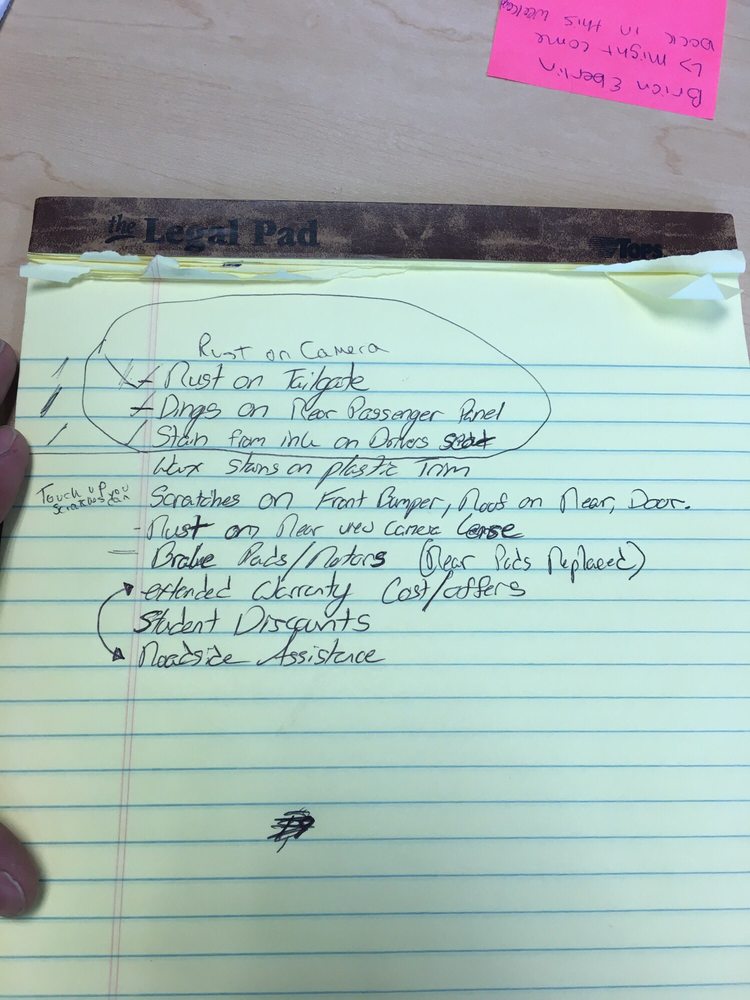 Brian Eberlin
↳ might come
back in this weekend
the Legal Pad
TOPS
Rust on Camera
Rust on Tailgate
Dings on Rear Passenger Panel
Stain from ink on Drivers seat
Wax stains on plastic Trim
Touch up you
scratches can
Scratches on Front Bumper, Roof on Rear, Door.
- Rust on Rear view camera Lense
- Brake Pads/Rotors (Rear Pads Replaced)
extended Warranty Cost/offers
Student Discounts
Roadside Assistance